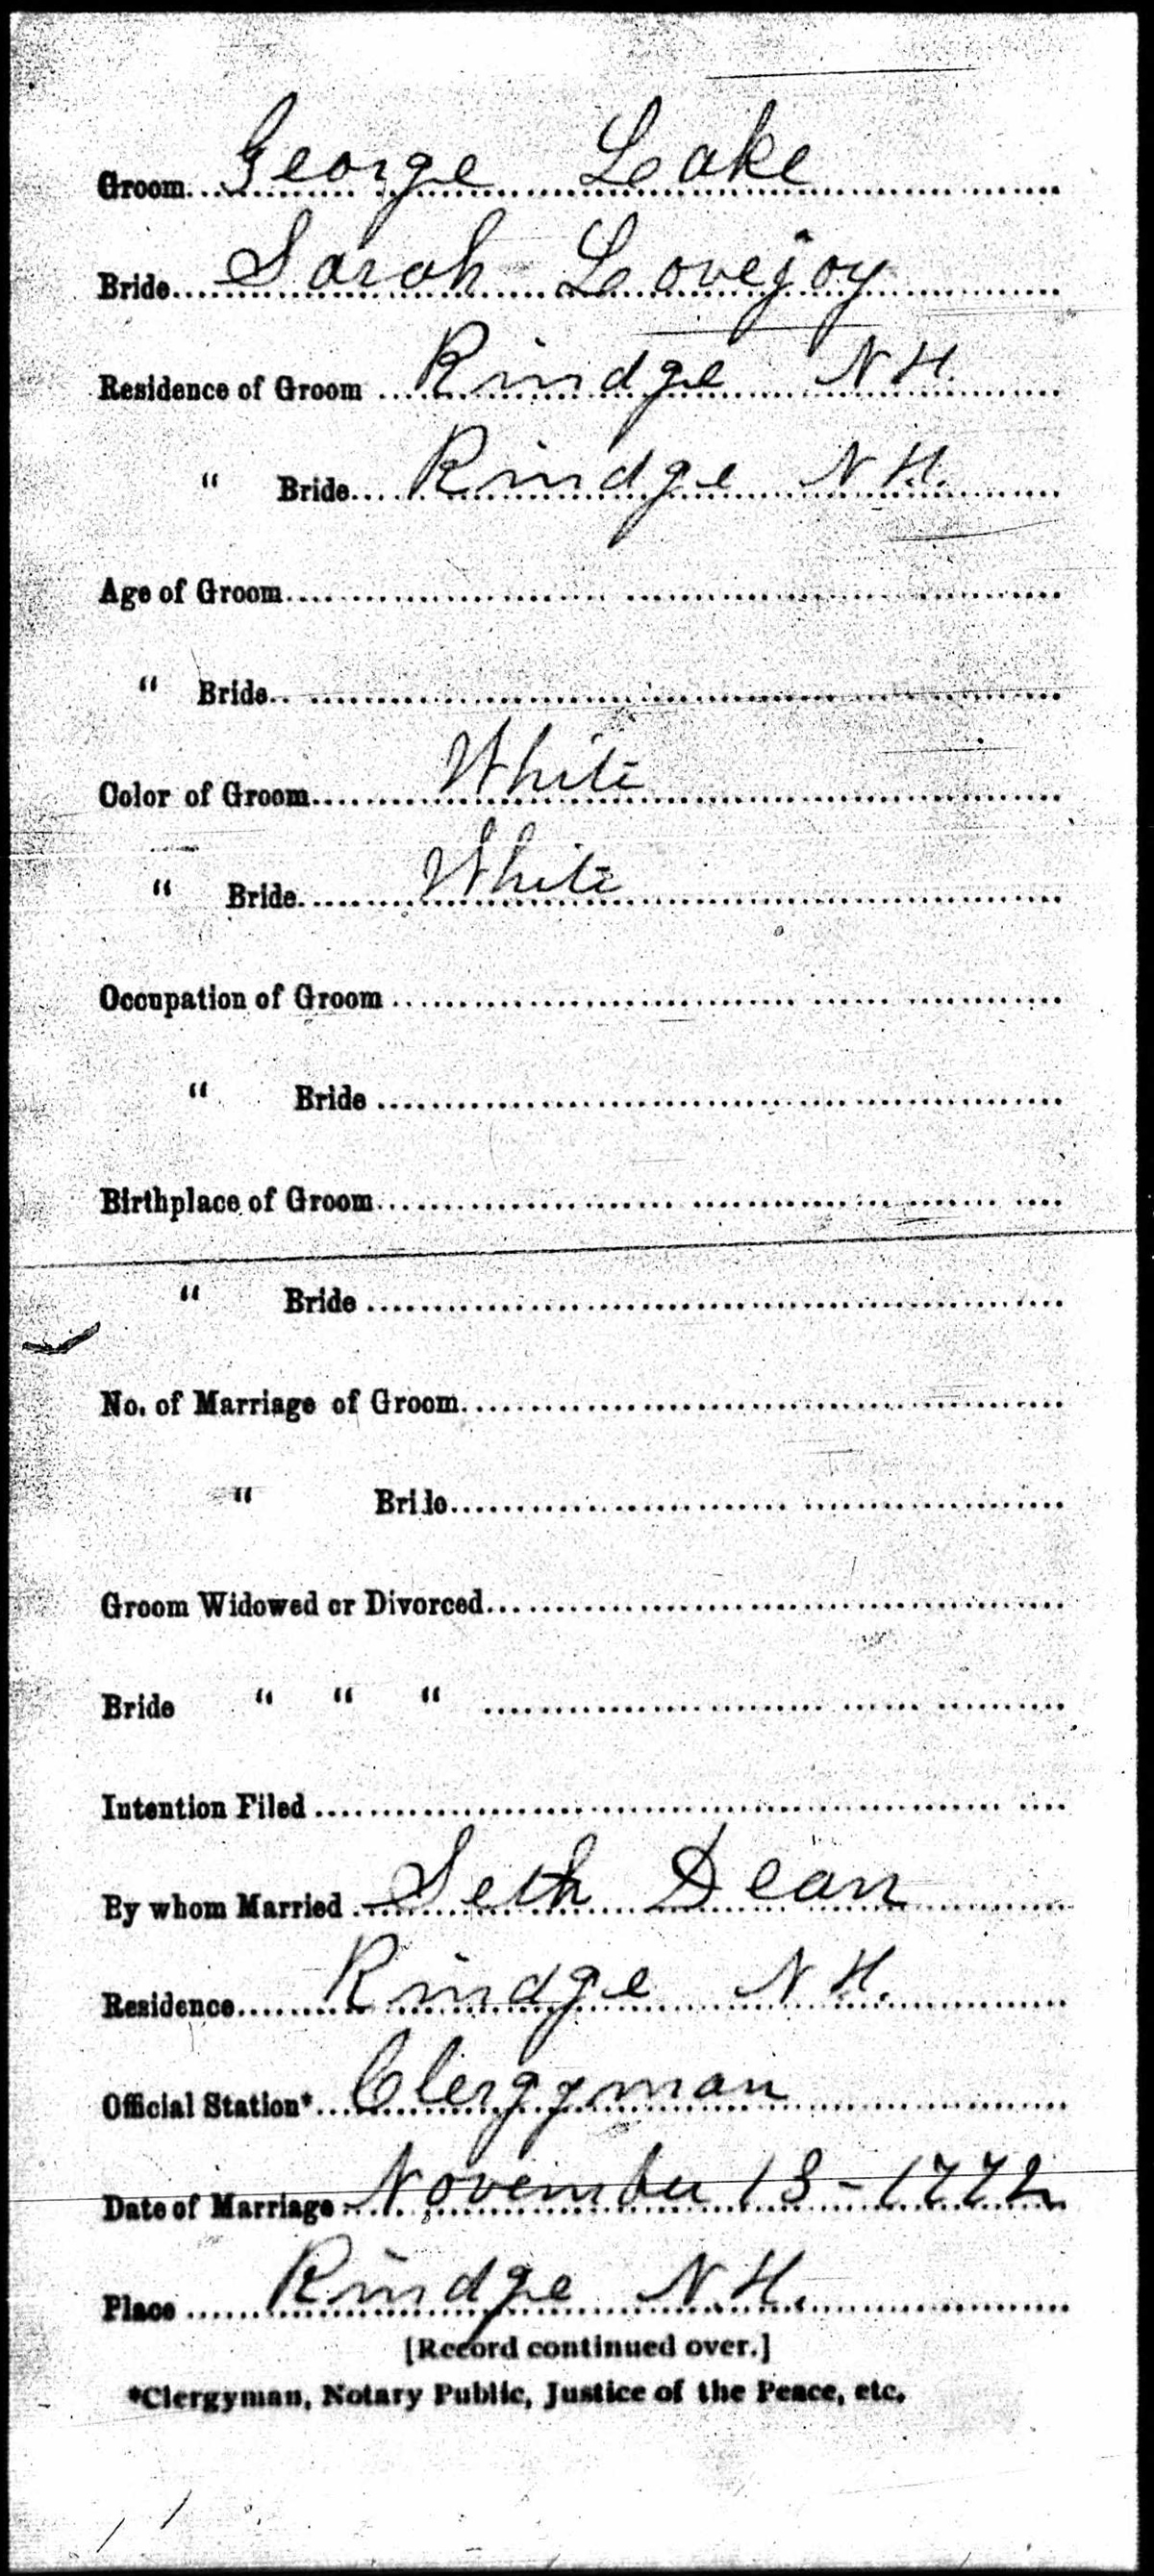 Groom George Lake
Bride Sarah Lovejoy
Residence of Groom Rindge N.H.
" Bride Rindge N.H.
Age of Groom
" Bride
Color of Groom White
" Bride White
Occupation of Groom
" Bride
Birthplace of Groom
" Bride
No. of Marriage of Groom
" Bride
Groom Widowed or Divorced
Bride " " "
Intention Filed
By whom Married Seth Dean
Residence Rindge N.H.
Official Station* Clergyman
Date of Marriage November 13-1772
Place Rindge N.H.
[Record continued over.]
*Clergyman, Notary Public, Justice of the Peace, etc.